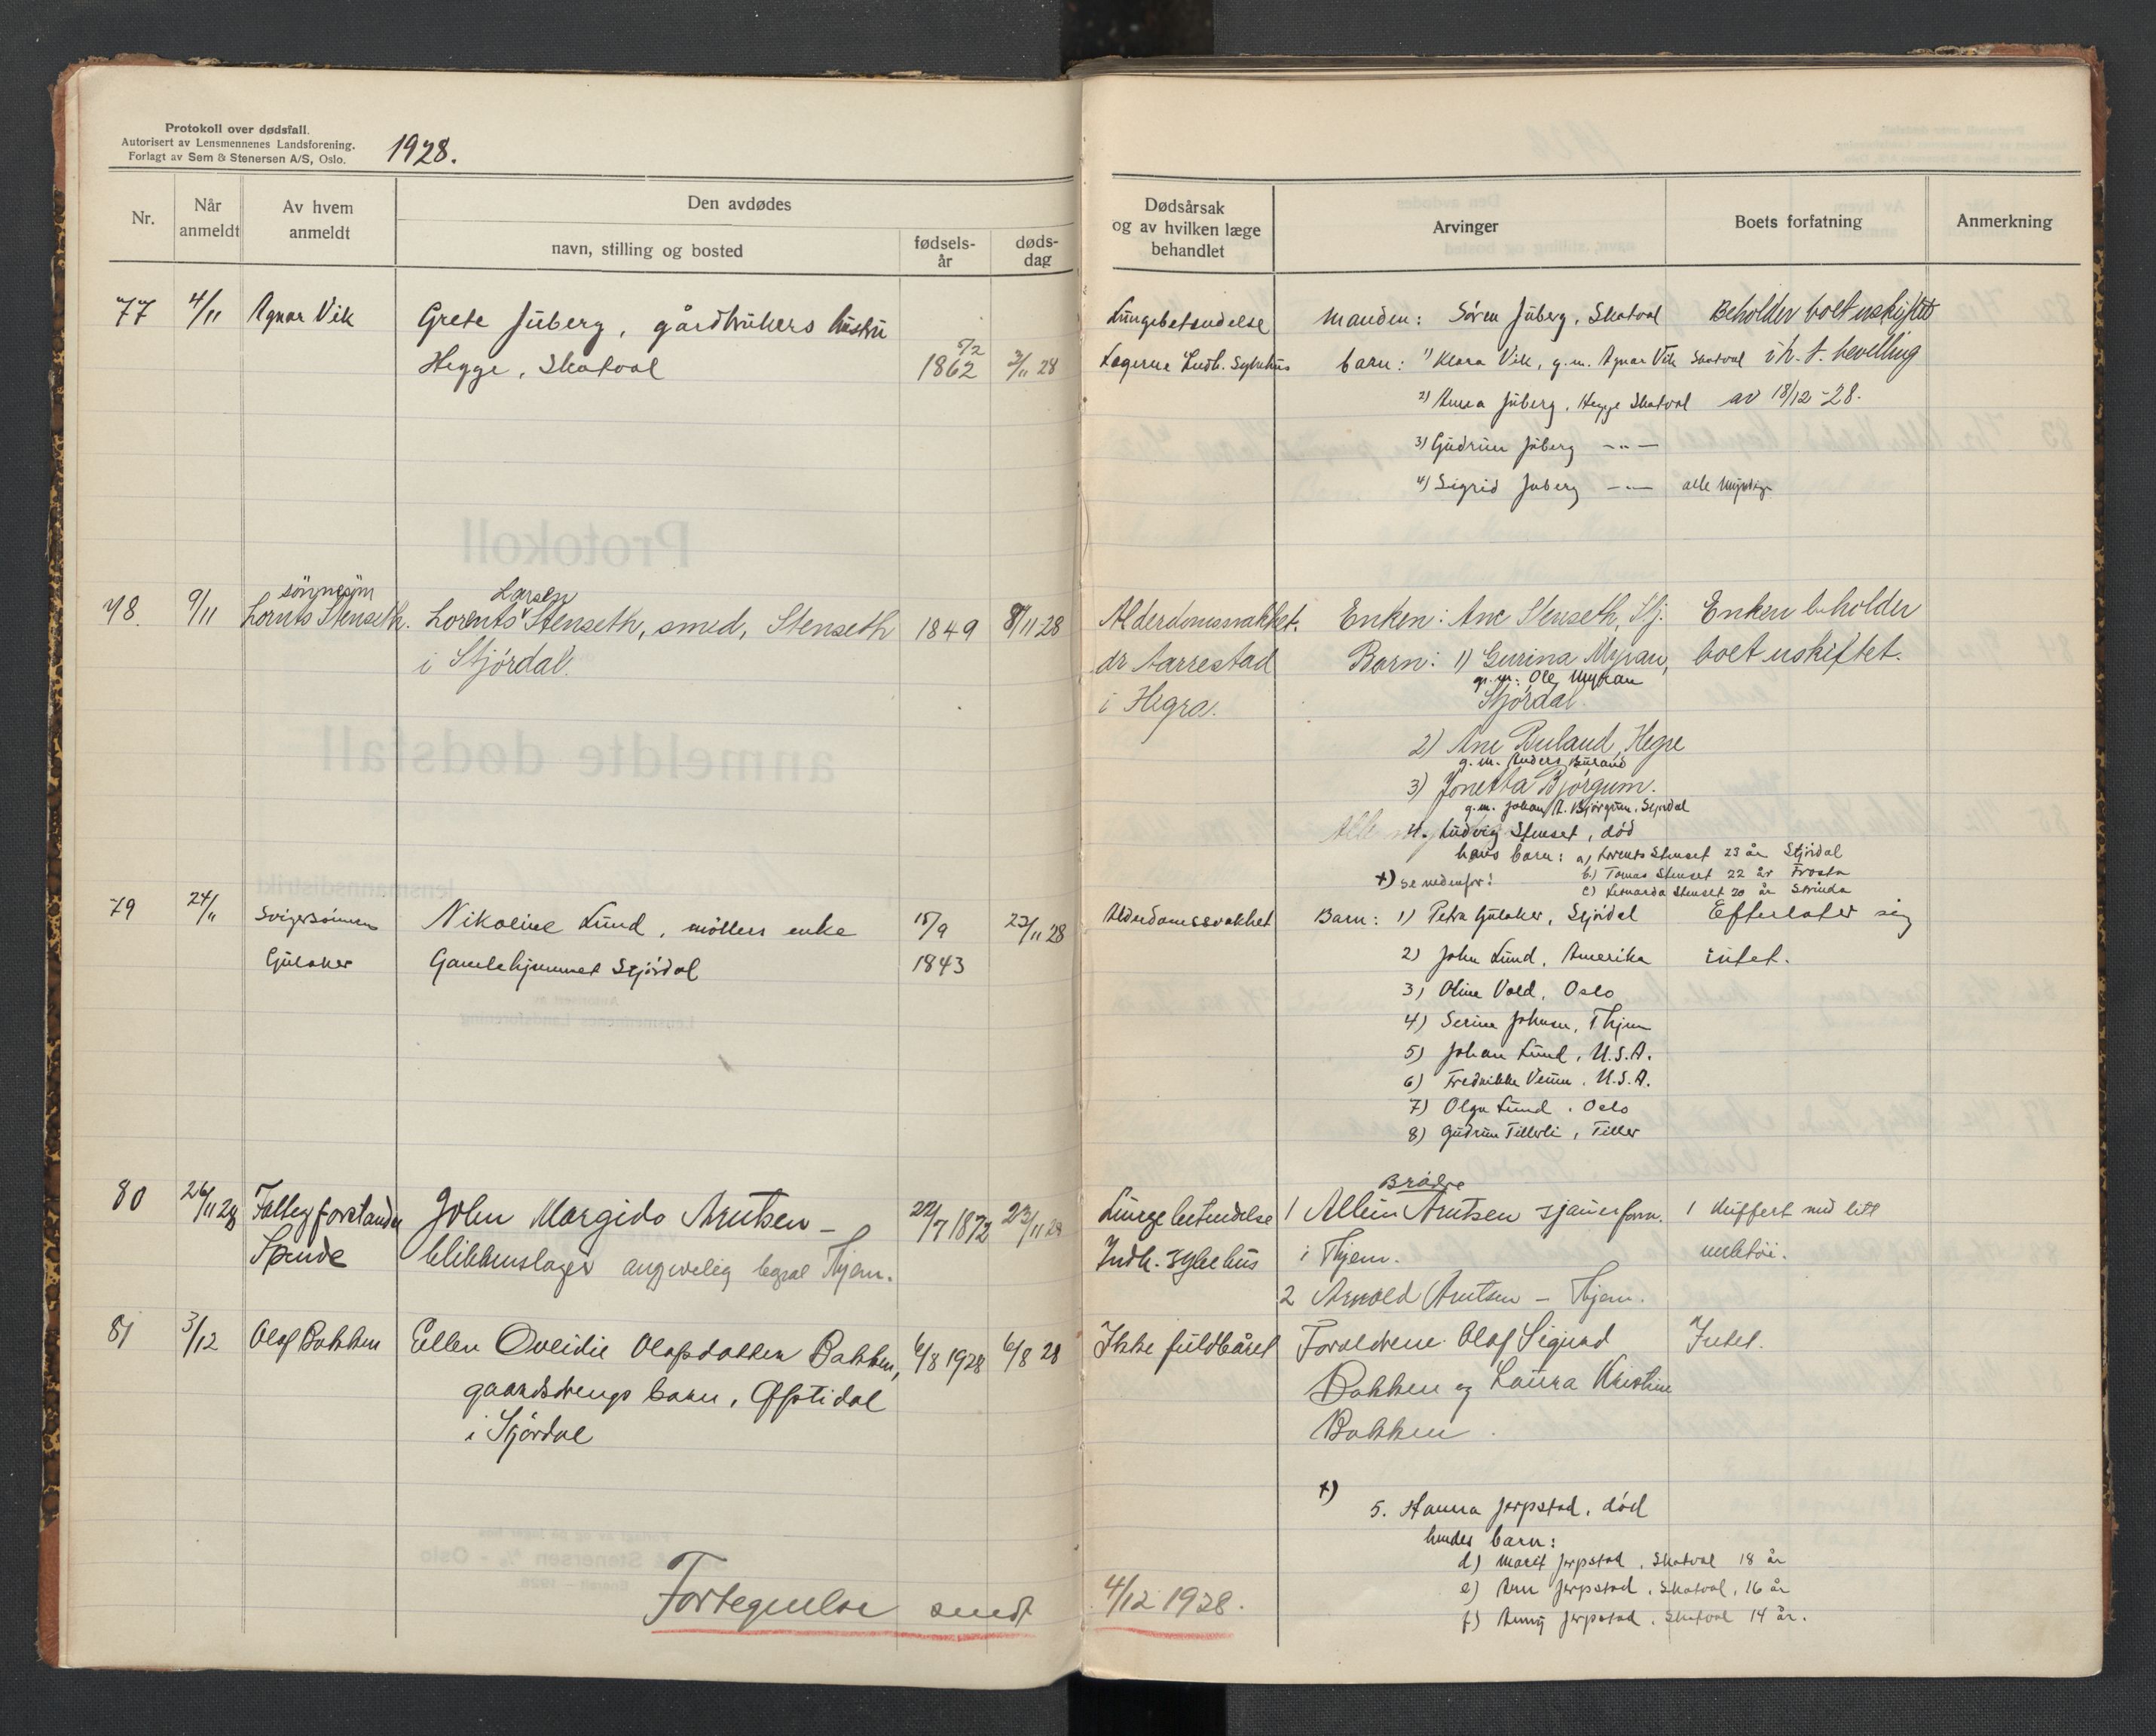 Protokoll over dødsfall.
Autorisert av Lensmennenes Landsforening.
Forlagt av Sem & Stenersen A/S, Oslo.
1928.
Nr.
Når anmeldt
Av hvem anmeldt
Den avdødes
navn, stilling og bosted
fødsels-år
døds-dag
Dødsårsak og av hvilken læge behandlet
Arvinger
Boets forfatning
Anmerkning
77 4/11 Agnar Vik Grete Juberg, gårdbrukers hustru
Hegge, Skatval 5/2 1862 3/11 28
Lungebetendelse
Lægerne Indh. Sykehus
Manden: Søren Juberg, Skatval
barn: 1) Klara Vik, g.m. Agnar Vik Skatval
2) Anna Juberg, Hegge Skatval
3) Gudrun Juberg —"—
4) Sigrid Juberg —"— alle myndige
Beholder boet uskiftet
i h. t. bevilling
av 18/12-28.
78. 9/11 sönnesön
Lornts Stenseth. Lorents Larsen Stenseth, smed, Stenseth
i Stjórdal. 1849 8/11 28
Alderdomssvakhet.
dr Aarrestad
i Hegra.
Enken: Ane Stenseth, Stj.
Barn: 1) Gurina Myran,
g.m. Ole Myran
Stjórdal.
2) Ane Buland, Hegre
g.m. Anders Buland
3) Jonetta Bjórgum.
g.m. Johan A. Bjórgum, Stjordal
4. Ludvig Stenset, död
hans barn: a) Lorents Stenset 23 år Stjórdal
b) Tomas Stenset 22 år Frosta
c) Leonarda Stenset 20 år Strinda
+) se nedenfor!
Enken beholder
boet uskiftet.
79 24/11 Svigersönnen
Gulaker
Nikoline Lund, möllers enke
Gamlehjemmet Stjórdal
15/9
1843
23/11 28
Alderdomssvakhet
Barn: 1) Petra Gulaker, Stjórdal
2) John Lund, Amerika
3) Oline Vold, Oslo
4) Serine Johnsen, Thjem
5) Johan Lund, U.S.A.
6) Fredrikke Venn, U.S.A.
7) Olga Lund, Oslo
8) Gudrun Tillerli, Tiller
Efterlater sig
intet.
80 26/11 28 Fattigforstander
Spjude
John Margido Arntsen —
blikkenslager angivelig bopæl Thjem.
22/7 1872 23/11 28
Lungebetendelse
Indh. sykehus
Brödre
1 Arntsen sjauerform.
i Thjem.
2 Arnold Arntsen — Thjem.
1 Kuffert med litt
verktöi.
81 3/12 Olaf Bakken
Ellen Oveidie Olafsdatter Bakken,
gaardsdrengs barn,
i Stjórdal
6/8 1928 6/8 28
Ikke fuldbåret
Foraldrene Olaf Sigurd
Bakken og Laura Kristine
Bakken.
Intet.
+)
5. Hanna Jerpstad, död
hendes barn:
d) Marit Jerpstad, Skatval 18 år
e) Arne Jerpstad, Skatval, 16 år
f) Anny Jerpstad, Skatval 14 år.
Fortegnelse sendt 4/12 1928.